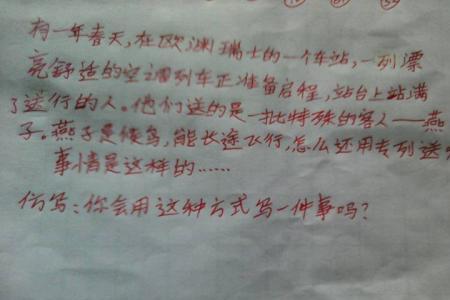 有一年春天,在欧洲瑞士的一个车站,一列漂
亮舒适的空调列车正准备启程,站台上站满
了送行的人。他们送的是一批特殊的客人——燕
子。燕子是候鸟,能长途飞行,怎么还用专列送
事情是这样的……
仿写:你会用这种方式写一件事吗?